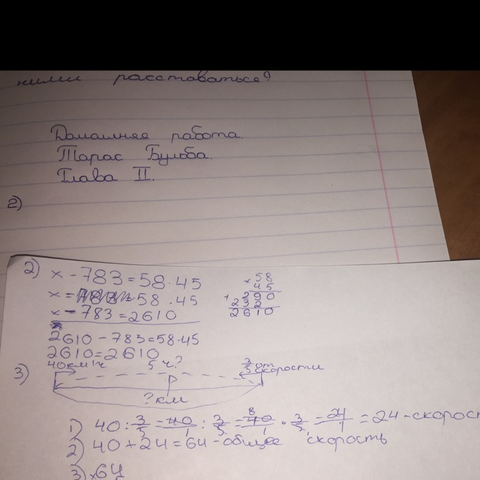 ними расставаться?
Домашняя работа
Тарас Бульба.
Глава II.
2)
2) x - 783 = 58 · 45
x 58
45
x = 58 · 45
+ 290
232
x - 783 = 2610
2610
2610 - 783 = 58 · 45
2610 = 2610
40 км/ч 5 ч? 3/5 от скорости
3)
? км
1) 40 : 3/5 = 40/1 : 3/5 = 40/1 · 3/5 = 24/1 = 24 - скорост
2) 40 + 24 = 64 - общее скорость
3) x 64